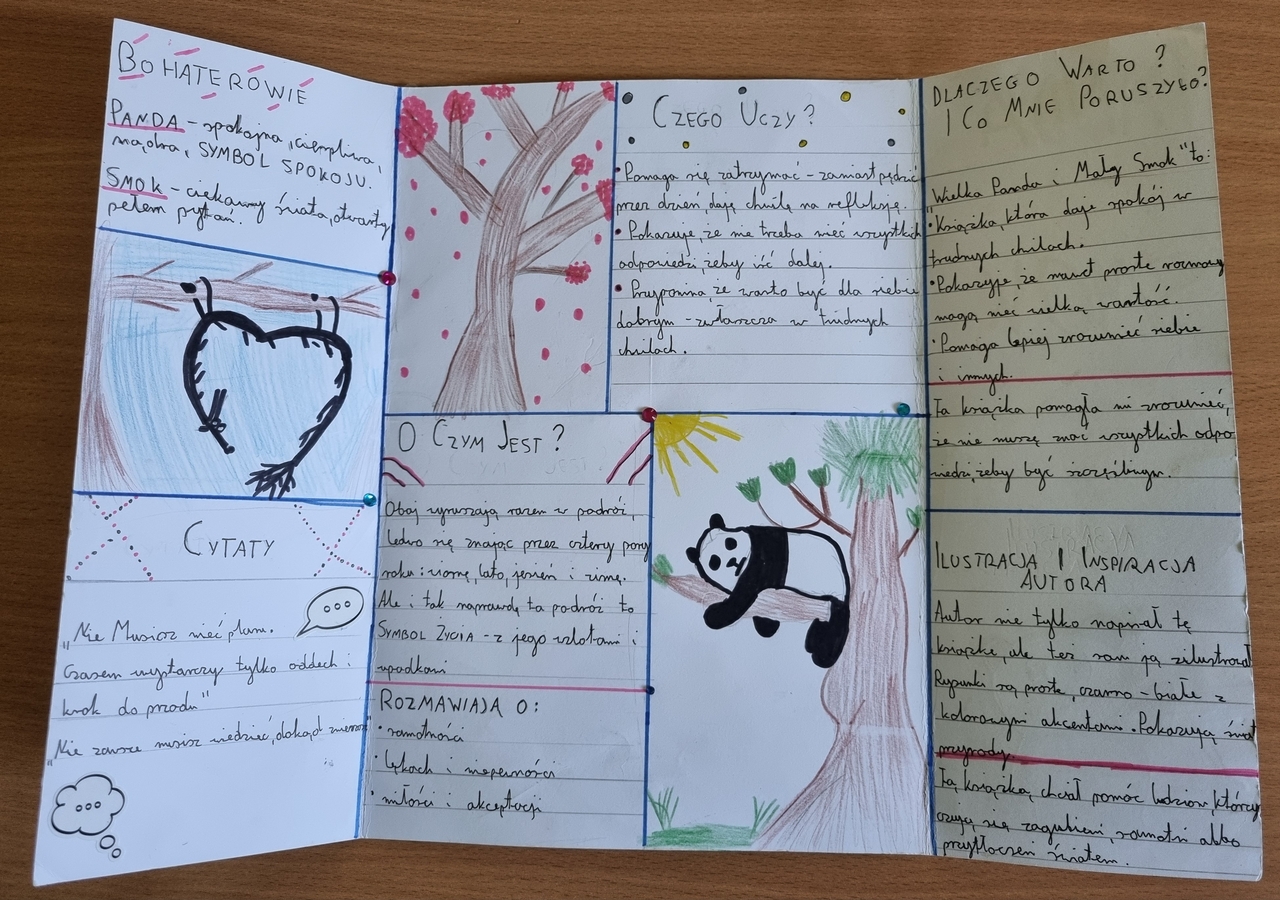 BOHATEROWIE
PANDA - spokojna, cierpliwa,
mądra, SYMBOL SPOKOJU.
SMOK - ciekawy świata, otwarty
pełem pytań.
CYTATY
"Nie Musisz mieć planu.
Czasem wystarczy tylko oddech i
krok do przodu"
"Nie zawsze musisz wiedzieć, dokąd zmierzasz"
O CZYM JEST?
Obaj wyruszają razem w podróż,
ledwo się znając przez cztery pory
roku: wiosnę, lato, jesień i zimę.
Ale i tak naprawdę ta podróż to
SYMBOL ŻYCIA - z jego wzlotami i
upadkami
ROZMAWIAJĄ O:
• samotności
• lękach i niepewności
• miłości i akceptacji
CZEGO UCZY?
• Pomaga się zatrzymać - zamiast pędzić
przez dzień, daję chwilę na refleksję.
• Pokazuje, że nie trzeba mieć wszystkich
odpowiedzi, żeby iść dalej.
• Przypomina, że warto być dla siebie
dobrym - zwłaszcza w trudnych
chwilach.
DLACZEGO WARTO?
I CO MNIE PORUSZYŁO?
"Wielka Panda i Mały Smok" to:
• Książka, która daje spokój w
trudnych chwilach.
• Pokazuje, że nawet proste rozmowy
mogą mieć wielką wartość.
• Pomaga lepiej zrozumieć siebie
i innych.
Ta książka pomogła mi zrozumieć,
że nie muszę znać wszystkich odpo
wiedzi, żeby być szczęśliwym.
ILUSTRACJA I INSPIRACJA
AUTORA
Autor nie tylko napisał tę
książkę, ale też sam ją zilustrował
Rysunki są proste, czarno - białe z
kolorowymi akcentami. Pokazują świat
przyrody.
Tą książką chciał pomóc ludziom, którzy
czują się zagubieni, samotni albo
przytłoczeni światem.